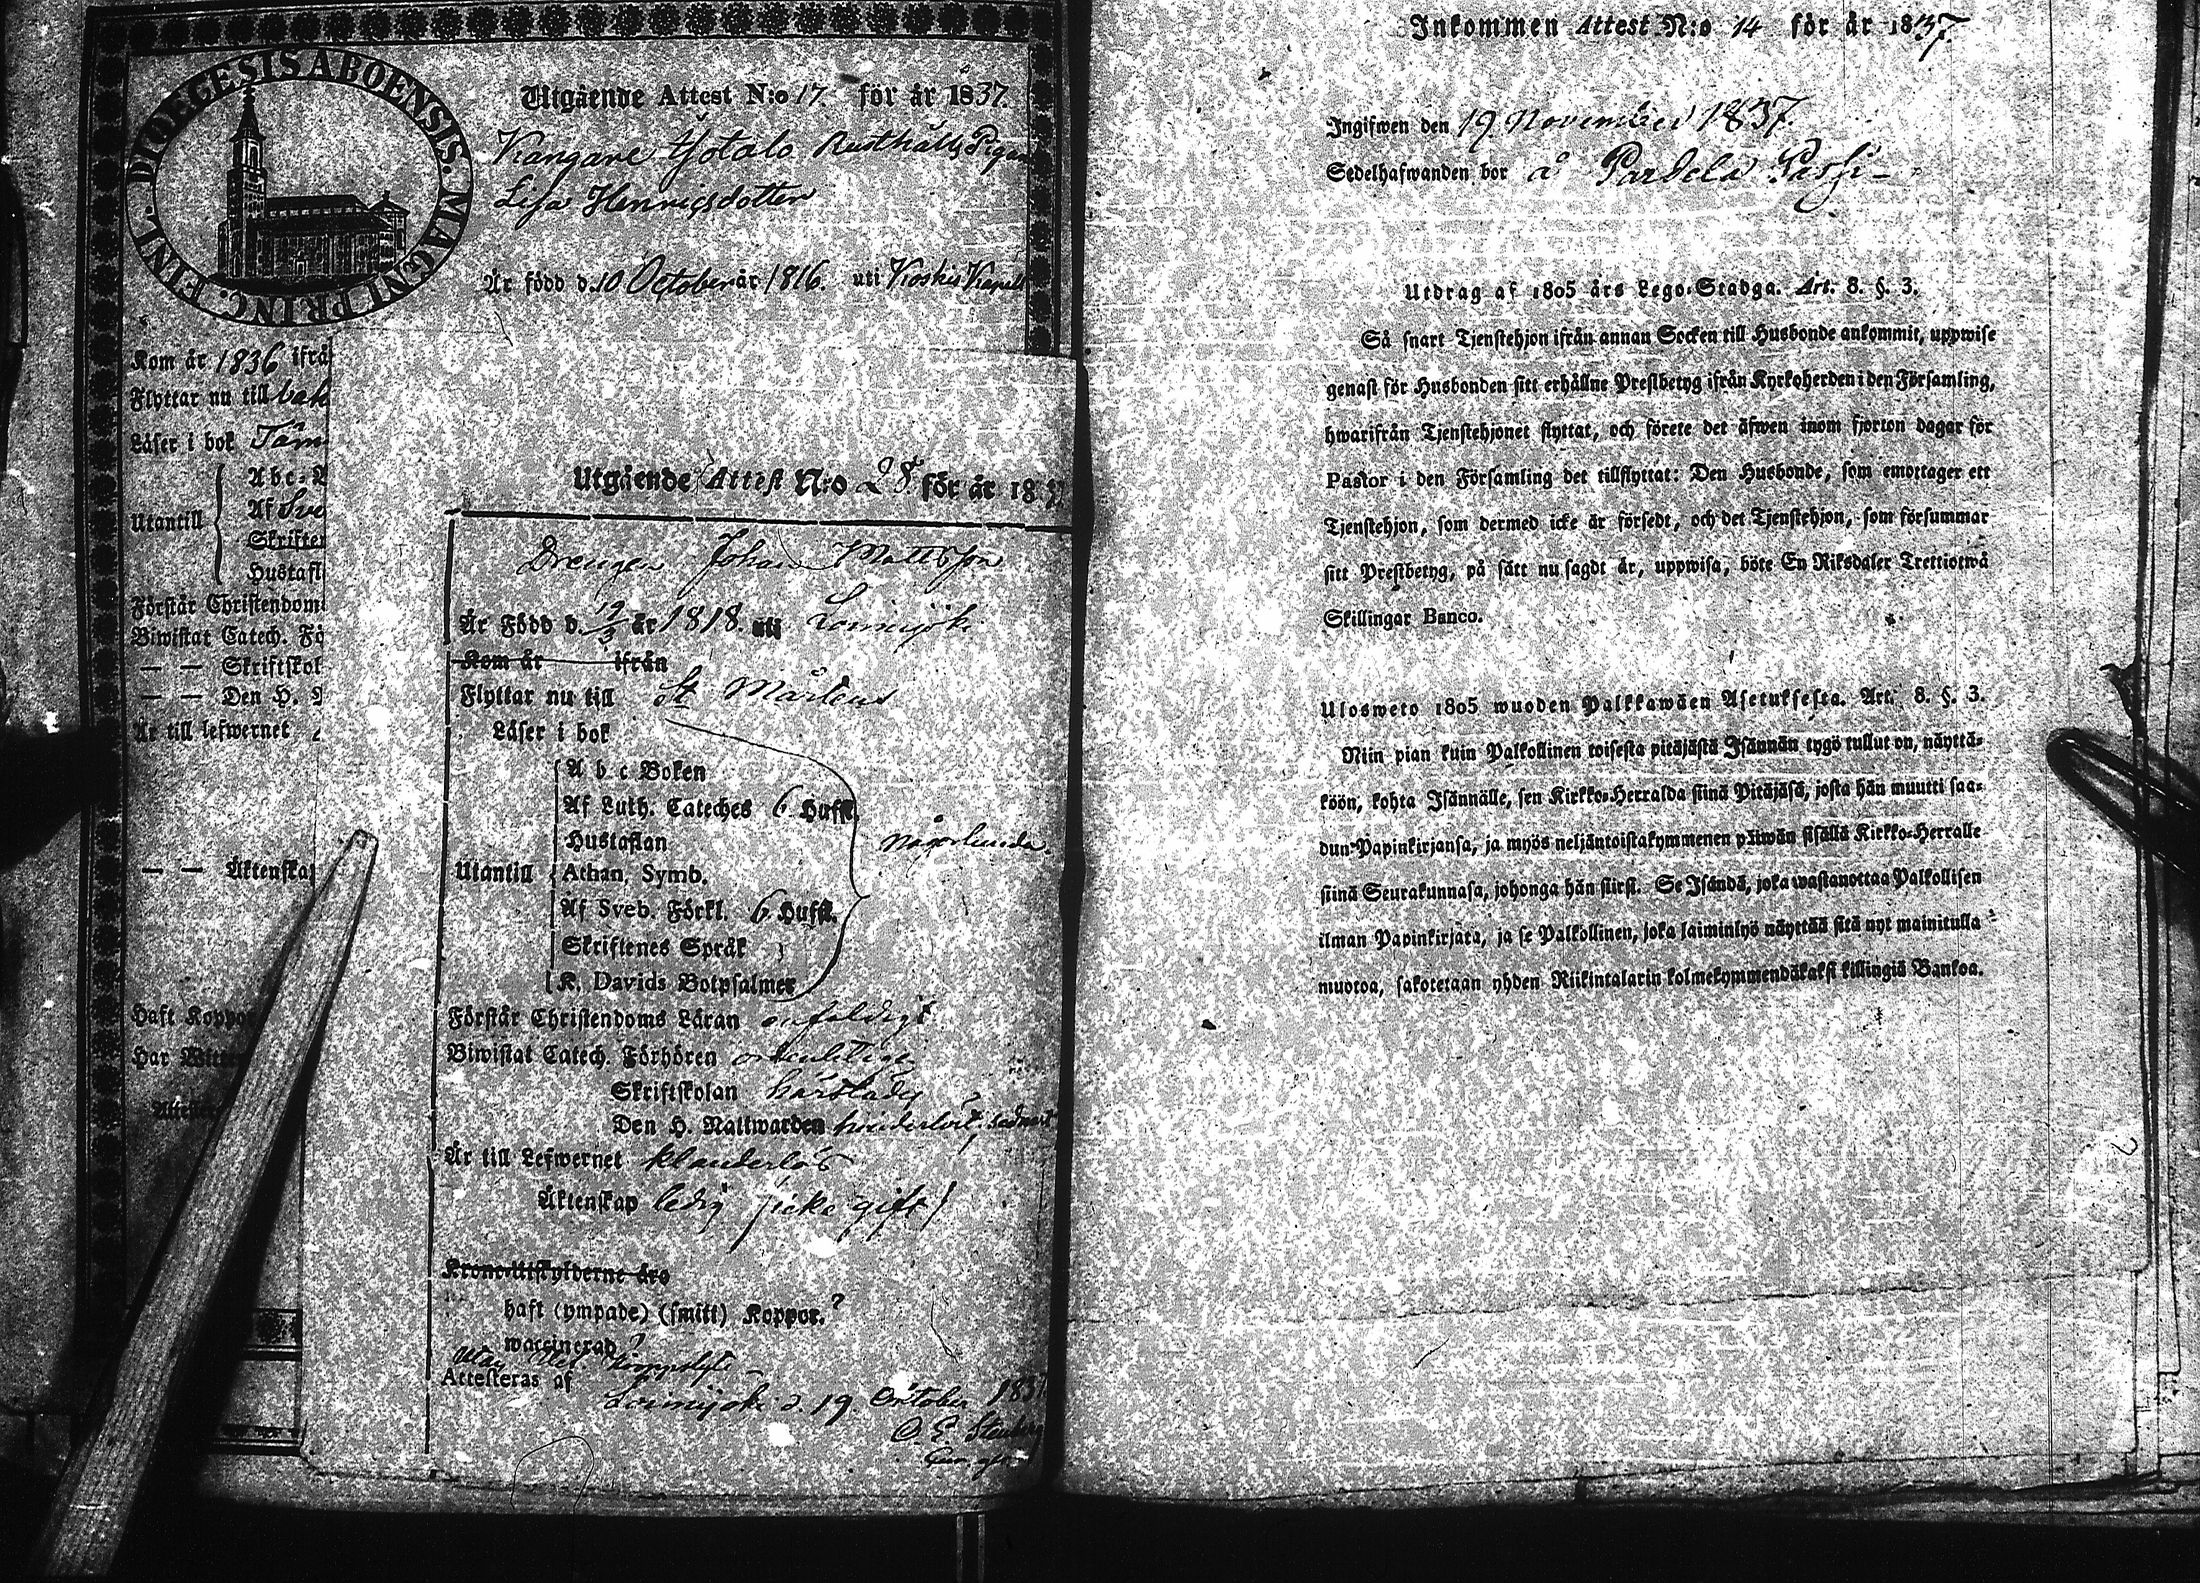 DIOECESIS ABOENSIS. MAGNI PRINC. FINL.
Utgående Attest N:o 17 för år 1837.
Kangare Ylötalo Rusthålls Pigan
Lisa Henricsdotter
Är född d. 10 October år 1816. uti Koskis Kapell
Kom år 1836 ifrå
Flyttar nu till bak
Läser i bok Täm
Abc-
Utantill
Af Sve
Skriften
Hustafl
Förstår Christendom
Biwistat Catech. Fö
— — Skriftskol
— — Den H. N
Är till lefwernet
— — Äktenskap
Haft Koppo
Har Witt
Utgående Attest N:o 28. för år 18
Drengen Johan Mattsson
Är Född d. 19/3 år 1818. uti Loimijoki
Kom år ifrån
Flyttar nu till St Mårtens
Läser i bok
A b c Boken
Af Luth. Cateches 6 Hufst.
Hustaflan någorlunda.
Utantill Athan. Symb.
Af Sveb. Förkl. 6 Hufst.
Skriftenes Språk
K. Davids Botpsalmer
Förstår Christendoms Läran enfaldigt
Biwistat Catech. Förhören ordentlige
Skriftskolan
Den H. Nattwarden
Är till Lefwernet klanderlös
Äktenskap ledig /icke gift/
Krono-Utskylderne äro
haft (ympade) (smitt) Koppor.?
waccinerad?
Attesteras af
Loimijoki d. 19. October 1837
Inkommen Attest N:o 14 för år 1837.
Ingifwen den 19 November 1837
Sedelhafwanden bor å Parkela Passi
Utdrag af 1805 års Lego-Stadga. Art. 8. §. 3.
Så snart Tjenstehjon ifrån annan Socken till Husbonde ankommit, uppwise
genast för Husbonden sitt erhållne Prestbetyg ifrån Kyrkoherden i den Församling,
hwarifrån Tjenstehjonet flyttat, och förete det äfwen inom fjorton dagar för
Pastor i den Församling det tillflyttat: Den Husbonde, som emottager ett
Tjenstehjon, som dermed icke är försedt, och det Tjenstehjon, som försummar
sitt Prestbetyg, på sätt nu sagdt är, uppwisa, böte En Riksdaler Trettiotwå
Skillingar Banco.
Ulosweto 1805 wuoden Palkkawäen Asetuksesta. Art. 8. §. 3.
Niin pian kuin Palkollinen toisesta pitäjästä Isännän tygö tullut on, näyttä-
köön, kohta Isännälle, sen Kirkko-Herralda siinä Pitäjäsä, josta hän muutti saa-
dun Papinkirjansa, ja myös neljäntoistakymmenen päiwän sisällä Kirkko-Herralle
siinä Seurakunnasa, johonga hän siirsi. Se Isändä, joka wastanottaa Palkollisen
ilman Papinkirjata, ja se Palkollinen, joka laiminlyö näyttää sitä nyt mainitulla
muotoa, sakotetaan yhden Riikintalarin kolmekymmendäkaksi killingiä Bankoa.